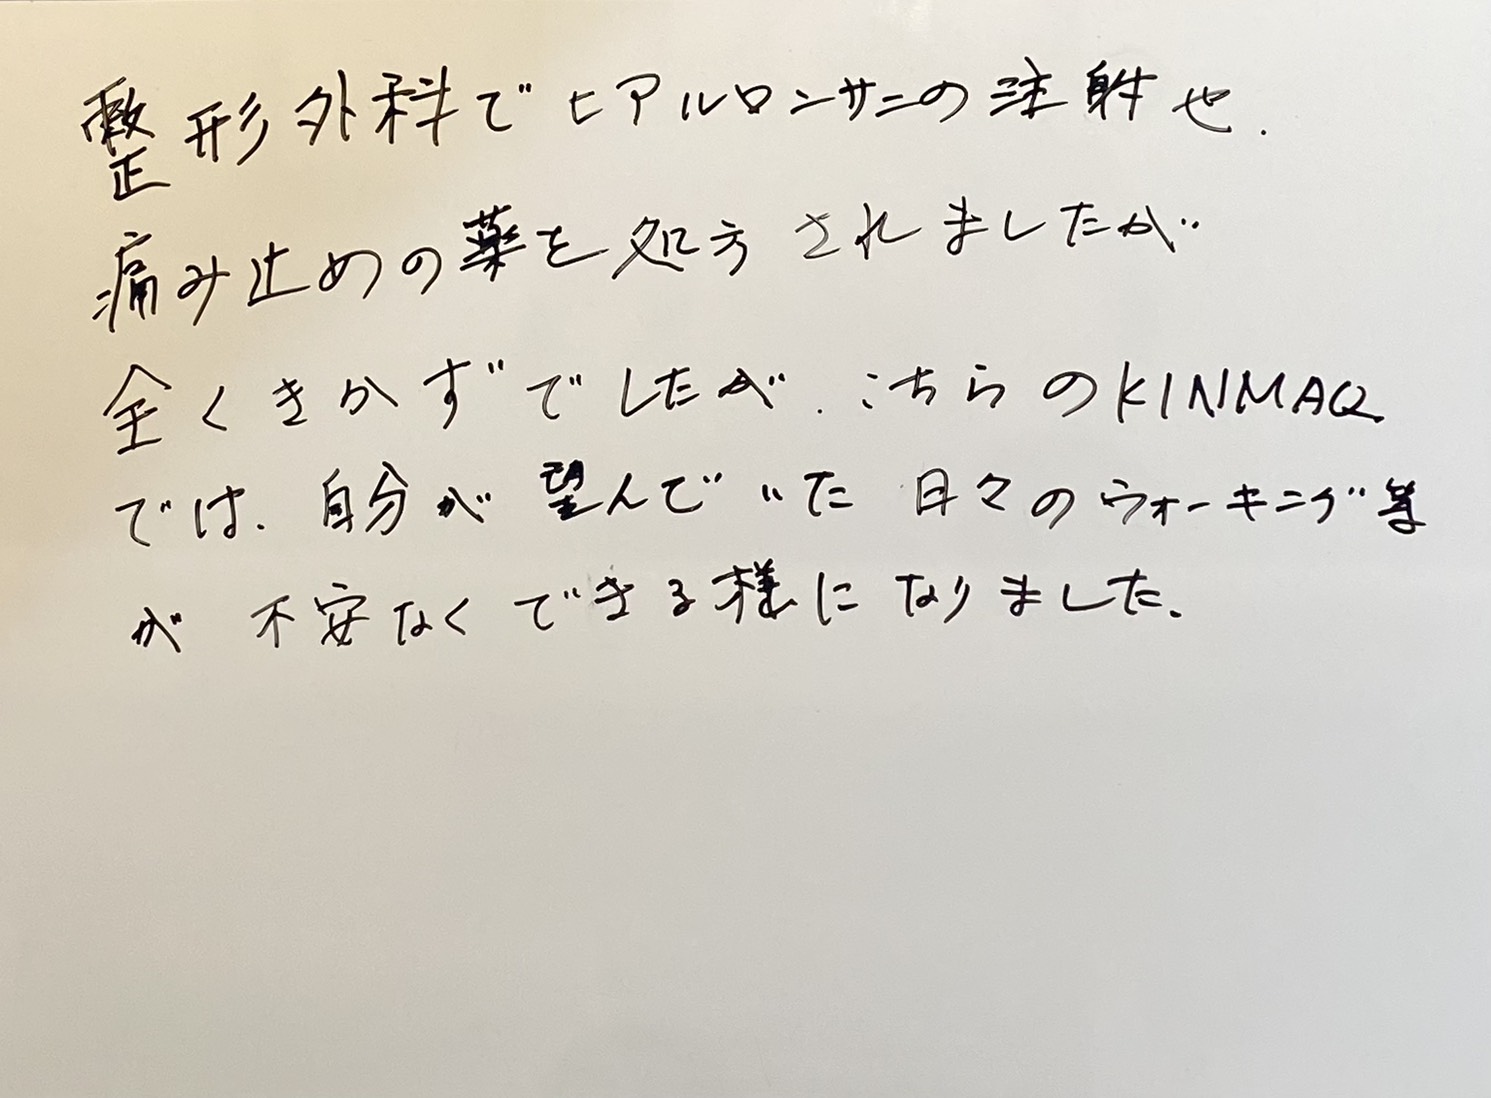 整形外科でヒアルロンサンの注射や、
痛み止めの薬を処方されましたが
全くきかずでしたが、こちらのKINMAQ
では、自分が望んでいた日々のウォーキング等
が不安なくできる様になりました。